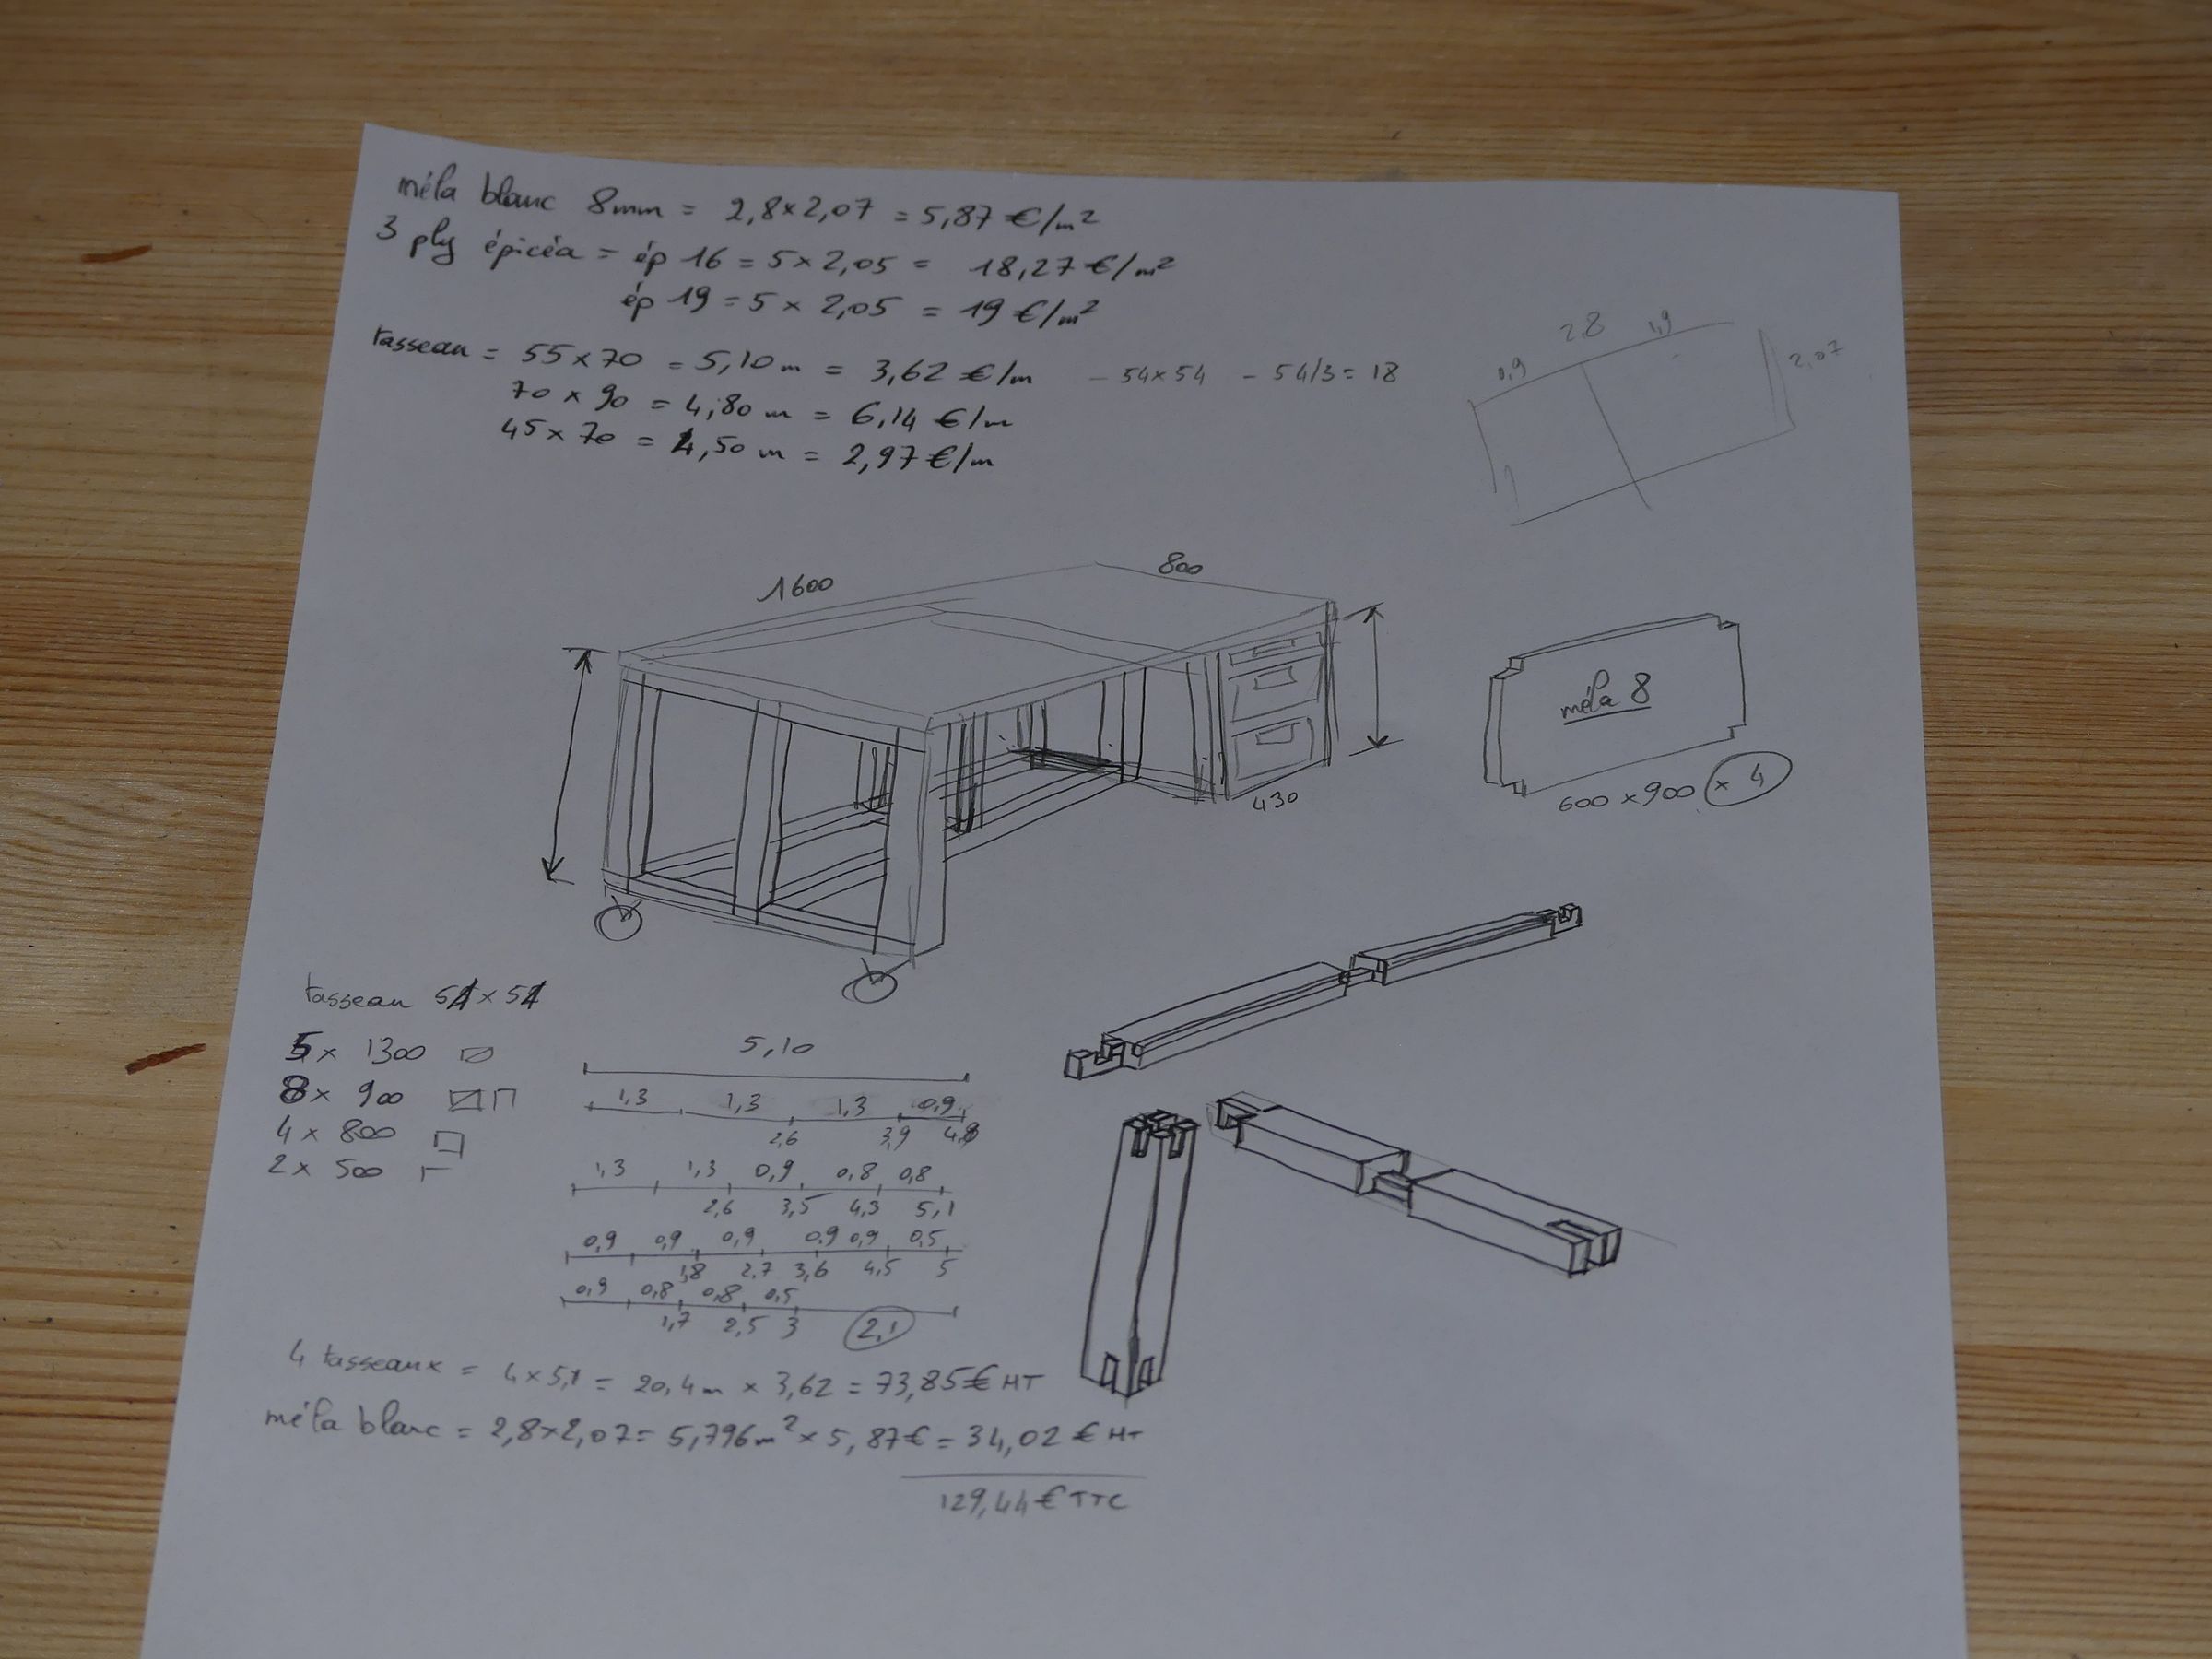 méla blanc 8mm = 2,8×2,07 = 5,87 €/m²
3 ply épicéa = ép 16 = 5×2,05 = 18,27 €/m²
ép 19 = 5 × 2,05 = 19 €/m²
tasseau = 55×70 = 5,10 m = 3,62 €/m - 54×54 - 54/3 = 18
70 × 90 = 4,80 m = 6,14 €/m
45×70 = 4,50 m = 2,97 €/m
2.8
0,9 1,9
2,07
1600
800
430
méla 8
600 × 900 × 4
tasseau 54×54
5× 1300
8× 900
4 × 800
2× 500
5,10
1,3 1,3 1,3 0,9
2,6 3,9 4,8
1,3 1,3 0,9 0,8 0,8
2,6 3,5 4,3 5,1
0,9 0,9 0,9 0,9 0,9 0,5
1,8 2,7 3,6 4,5 5
0,9 0,8 0,8 0,5
1,7 2,5 3 2,1
4 tasseaux = 4×5,1 = 20,4m × 3,62 = 73,85€ HT
méla blanc = 2,8×2,07= 5,796m² × 5,87€ = 34,02 € HT
129,44€ TTC